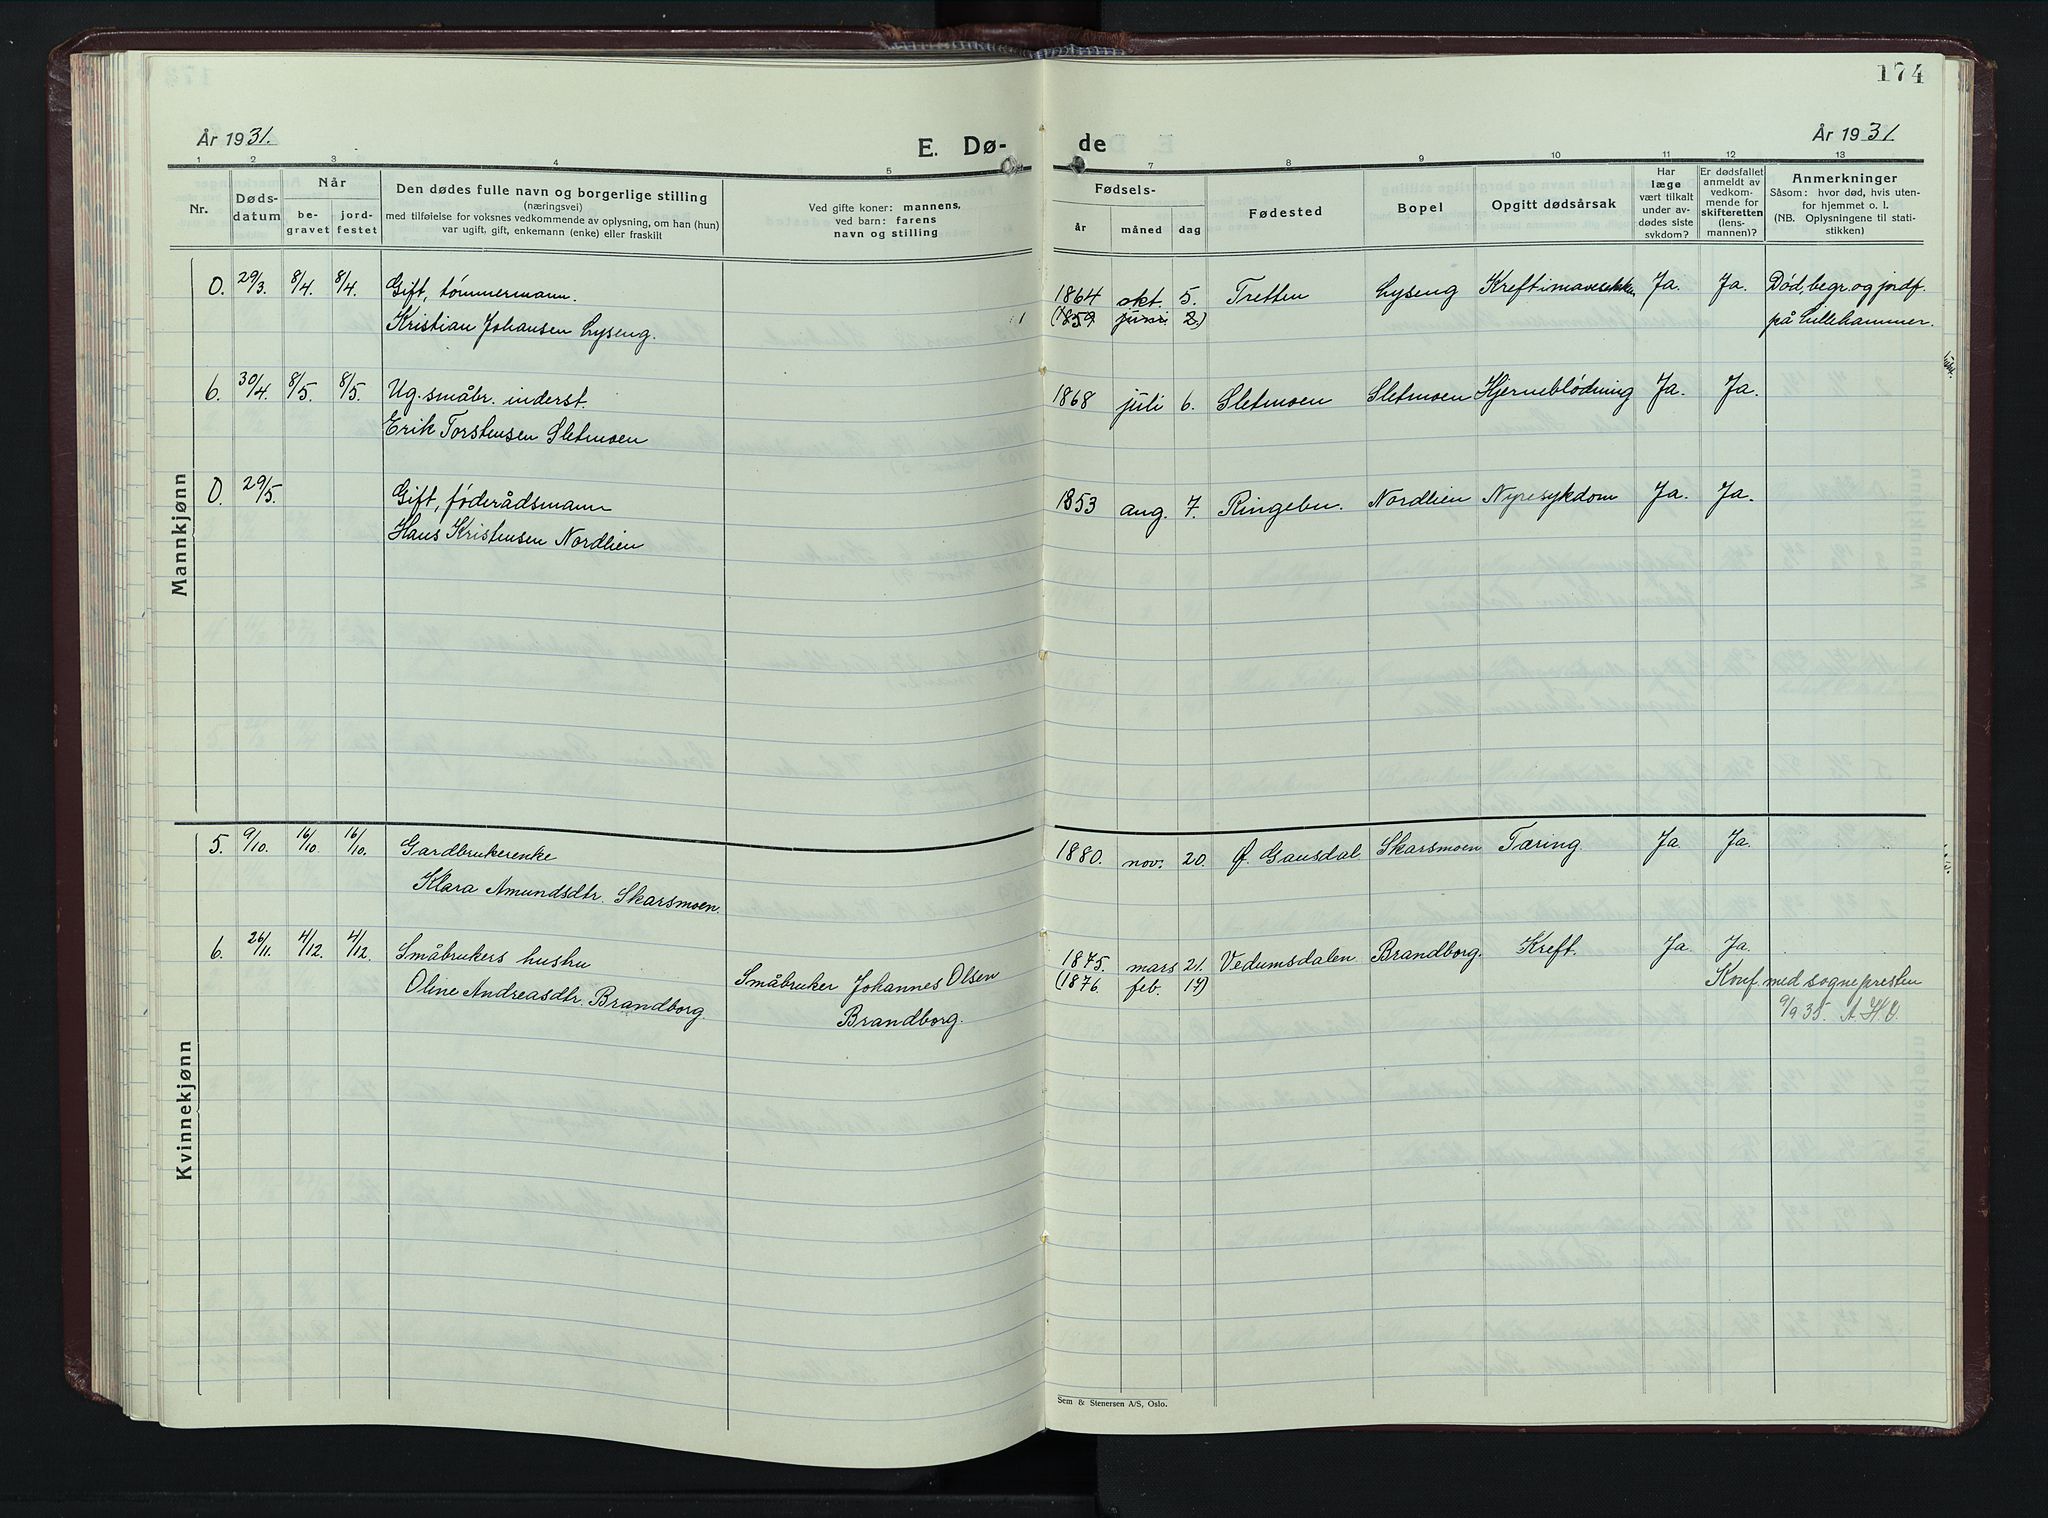 174
År 1931.
E. Dø-
de
År 1931
1 2 3 4 5 7 8 9 10 11 12 13
Nr.
Døds-
datum
Når
be-
gravet
jord-
festet
Den dødes fulle navn og borgerlige stilling
(næringsvei)
med tilføielse for voksnes vedkommende av oplysning, om han (hun)
var ugift, gift, enkemann (enke) eller fraskilt
Ved gifte koner: mannens,
ved barn: farens
navn og stilling
Fødsels-
år måned dag
Fødested
Bopel
Opgitt dødsårsak
Har
læge
vært tilkalt
under av-
dødes siste
sykdom?
Er dødsfallet
anmeldt av
vedkom-
mende for
skifteretten
(lens-
mannen)?
Anmerkninger
Såsom: hvor død, hvis uten-
for hjemmet o. l.
(NB. Oplysningene til stati-
stikken)
Mannkjønn
0. 29/3. 8/4. 8/4. Gift, tömmermann. 1864 okt. 5. Tretten Lyseng Kreft i mavesekken Ja. Ja. Död, begr. og jordf.
Kristian Johansen Lyseng. (1859 juni 2.) på Lillehammer.
6. 30/4. 8/5. 8/5. Ug. småbr. inderst. 1868 juli 6. Sletmoen Sletmoen Hjerneblödning Ja. Ja.
Erik Torstensen Sletmoen
0. 29/5. Gift, föderådsmann 1853 aug. 7. Ringebu. Nordlien Nyresykdom Ja. Ja.
Hans Kristensen Nordlien
Kvinnekjønn
5. 9/10. 16/10. 16/10. Gardbrukerenke 1880. nov. 20. Ø. Gausdal Skarsmoen Tæring. Ja Ja.
Klara Amundsdtr. Skarsmoen.
6. 26/11. 4/12. 4/12. Småbrukers hustru 1875. mars 21. Vedumsdalen Brandborg. Kreft. Ja Ja.
Oline Andreasdtr. Brandborg. Småbruker Johannes Olsen (1876. feb. 17) Konf. med sognepresten
Brandborg. 9/9 35. A.H.O.
Sem & Stenersen A/S, Oslo.